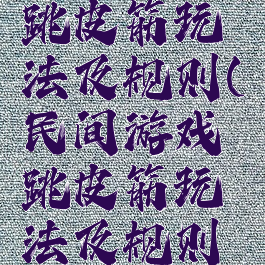 跳皮筋玩
法及规则(
民间游戏
跳皮筋玩
法及规则